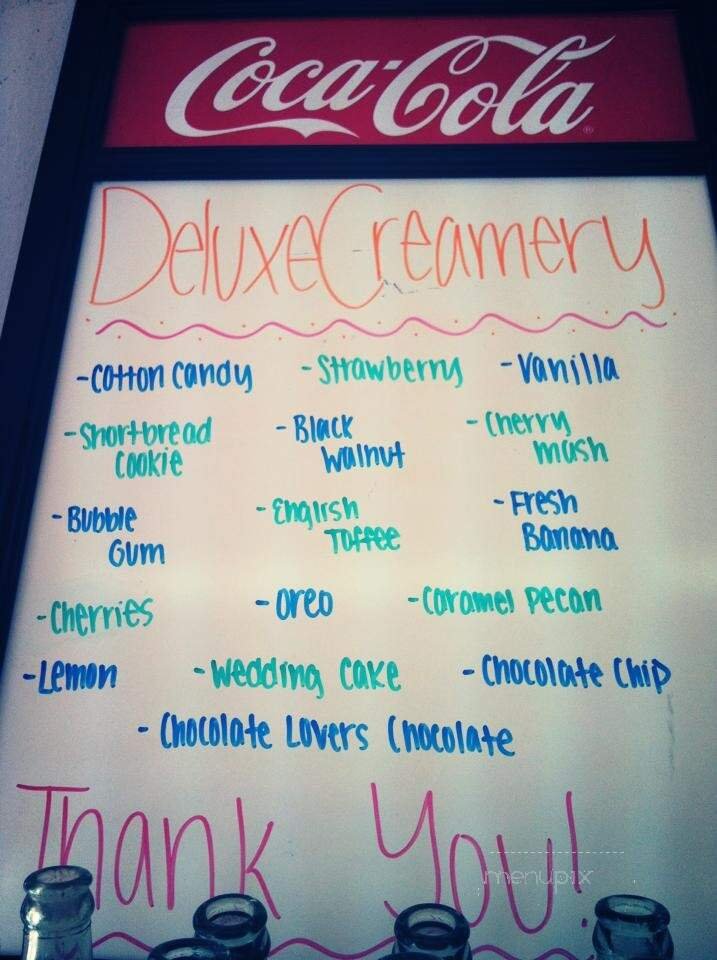 Coca-Cola
Deluxe Creamery
-Cotton Candy -Strawberry -Vanilla
-Shortbread - Black - Cherry
Cookie Walnut mash
- Bubble - English - Fresh
Gum Toffee Banana
-Cherries - Oreo -Caramel Pecan
-Lemon -Wedding Cake - Chocolate Chip
- Chocolate Lovers Chocolate
Thank You!
menupix